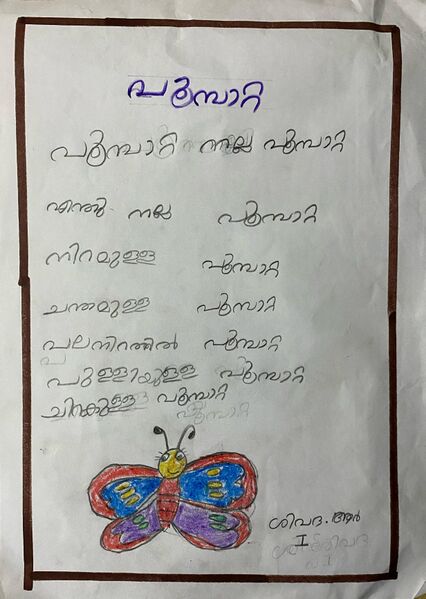 പൂമ്പാറ്റ
പൂമ്പാറ്റ നല്ല പൂമ്പാറ്റ
എന്തു നല്ല പൂമ്പാറ്റ
നിറമുള്ള പൂമ്പാറ്റ
ചന്തമുള്ള പൂമ്പാറ്റ
പലനിറത്തിൽ പൂമ്പാറ്റ
പുള്ളിയുള്ള പൂമ്പാറ്റ
ചിറകുള്ള പൂമ്പാറ്റ
പൂമ്പാറ്റ
ശിവദ. ആർ
I
ശിവദ
I